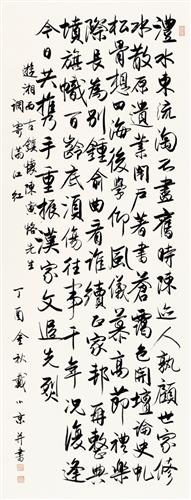 澧水東流淘不盡舊時陳迹人孰顧世家修
水散原遺業閉户著書蒼靄色開壇論史虬
松骨想四海後學仰風儀慕高節禮樂
際長為别鍾俞曲音誰續正家邦再整典
墳旗幟百齡底須傷往事千年況復逢
今日共攜手重振漢家文追先烈
遊湘西古鎮懷陳寅恪先生
調寄滿江紅
丁酉金秋戴小京并書